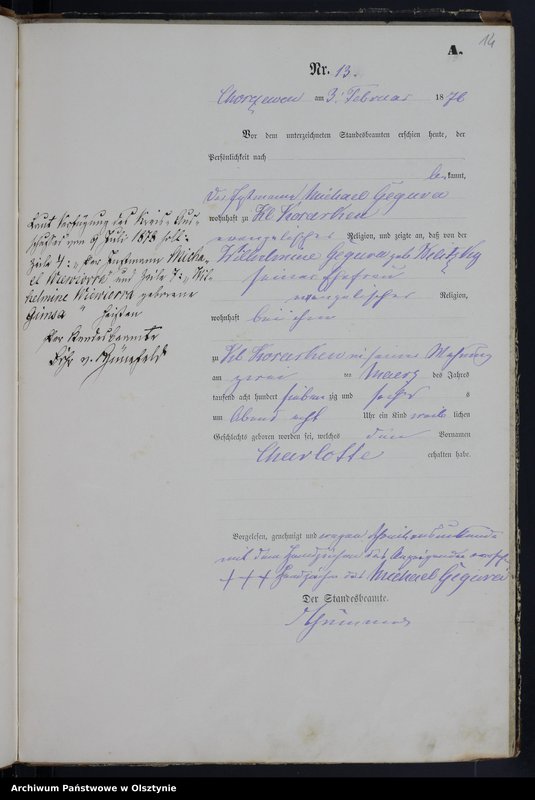 14
A.
Nr. 13.
Chorzewen am 3. Februar 1876
Vor dem unterzeichneten Standesbeamten erschien heute, der
Persönlichkeit nach
be kannt,
Michael Gegura
wohnhaft zu Kl Koraschen
evangelischer Religion, und zeigte an, daß von der
Wilhelmine Gegura geb.
seiner Ehefrau
evangelischer Religion,
wohnhaft bei ihm
zu Kl Koraschen in seiner Wohnung
am zwei ten Maerz des Jahres
tausend acht hundert sieben zig und sechs
um Abend acht Uhr ein Kind weib lichen
Geschlechts geboren worden sei, welches den Vornamen
Charlotte erhalten habe.
Vorgelesen, genehmigt und wegen
mit dem Handzeichen des Anzeigenden
+++ Handzeichen des Michael Gegura
Der Standesbeamte.
Laut Verfügung des Kreis-Aus-
schusses vom 9 Juli 1878 soll
Zeile 4: „Micha-
el Wiewiorra" und Zeile 7: „Wil-
helmine Wiewiorra geborene
heißen
Der Standesbeamte
Archiwum Państwowe w Olsztynie